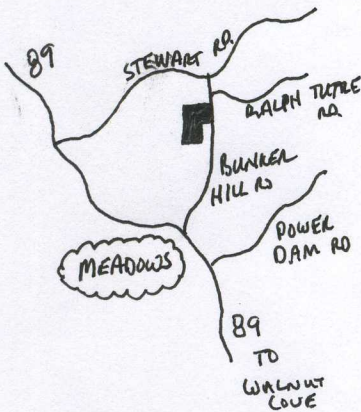 89
STEWART RD.
RALPH TUTTLE
RD.
BUNKER
HILL RD
POWER
DAM RD
MEADOWS
89
TO
WALNUT
COVE